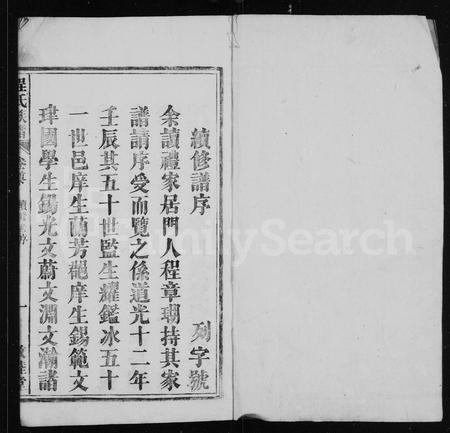 續修譜序 列字號
余讀禮家居門人程章瑚持其家
譜請序受而覽之係道光十二年
壬辰其五十世監生耀鑑冰五十
一世邑庠生蘭芳郡庠生錫範文
瑋國學生錫光文蔚文淵文瀚諸
程氏族譜 卷首 續修序 一
FamilySearch